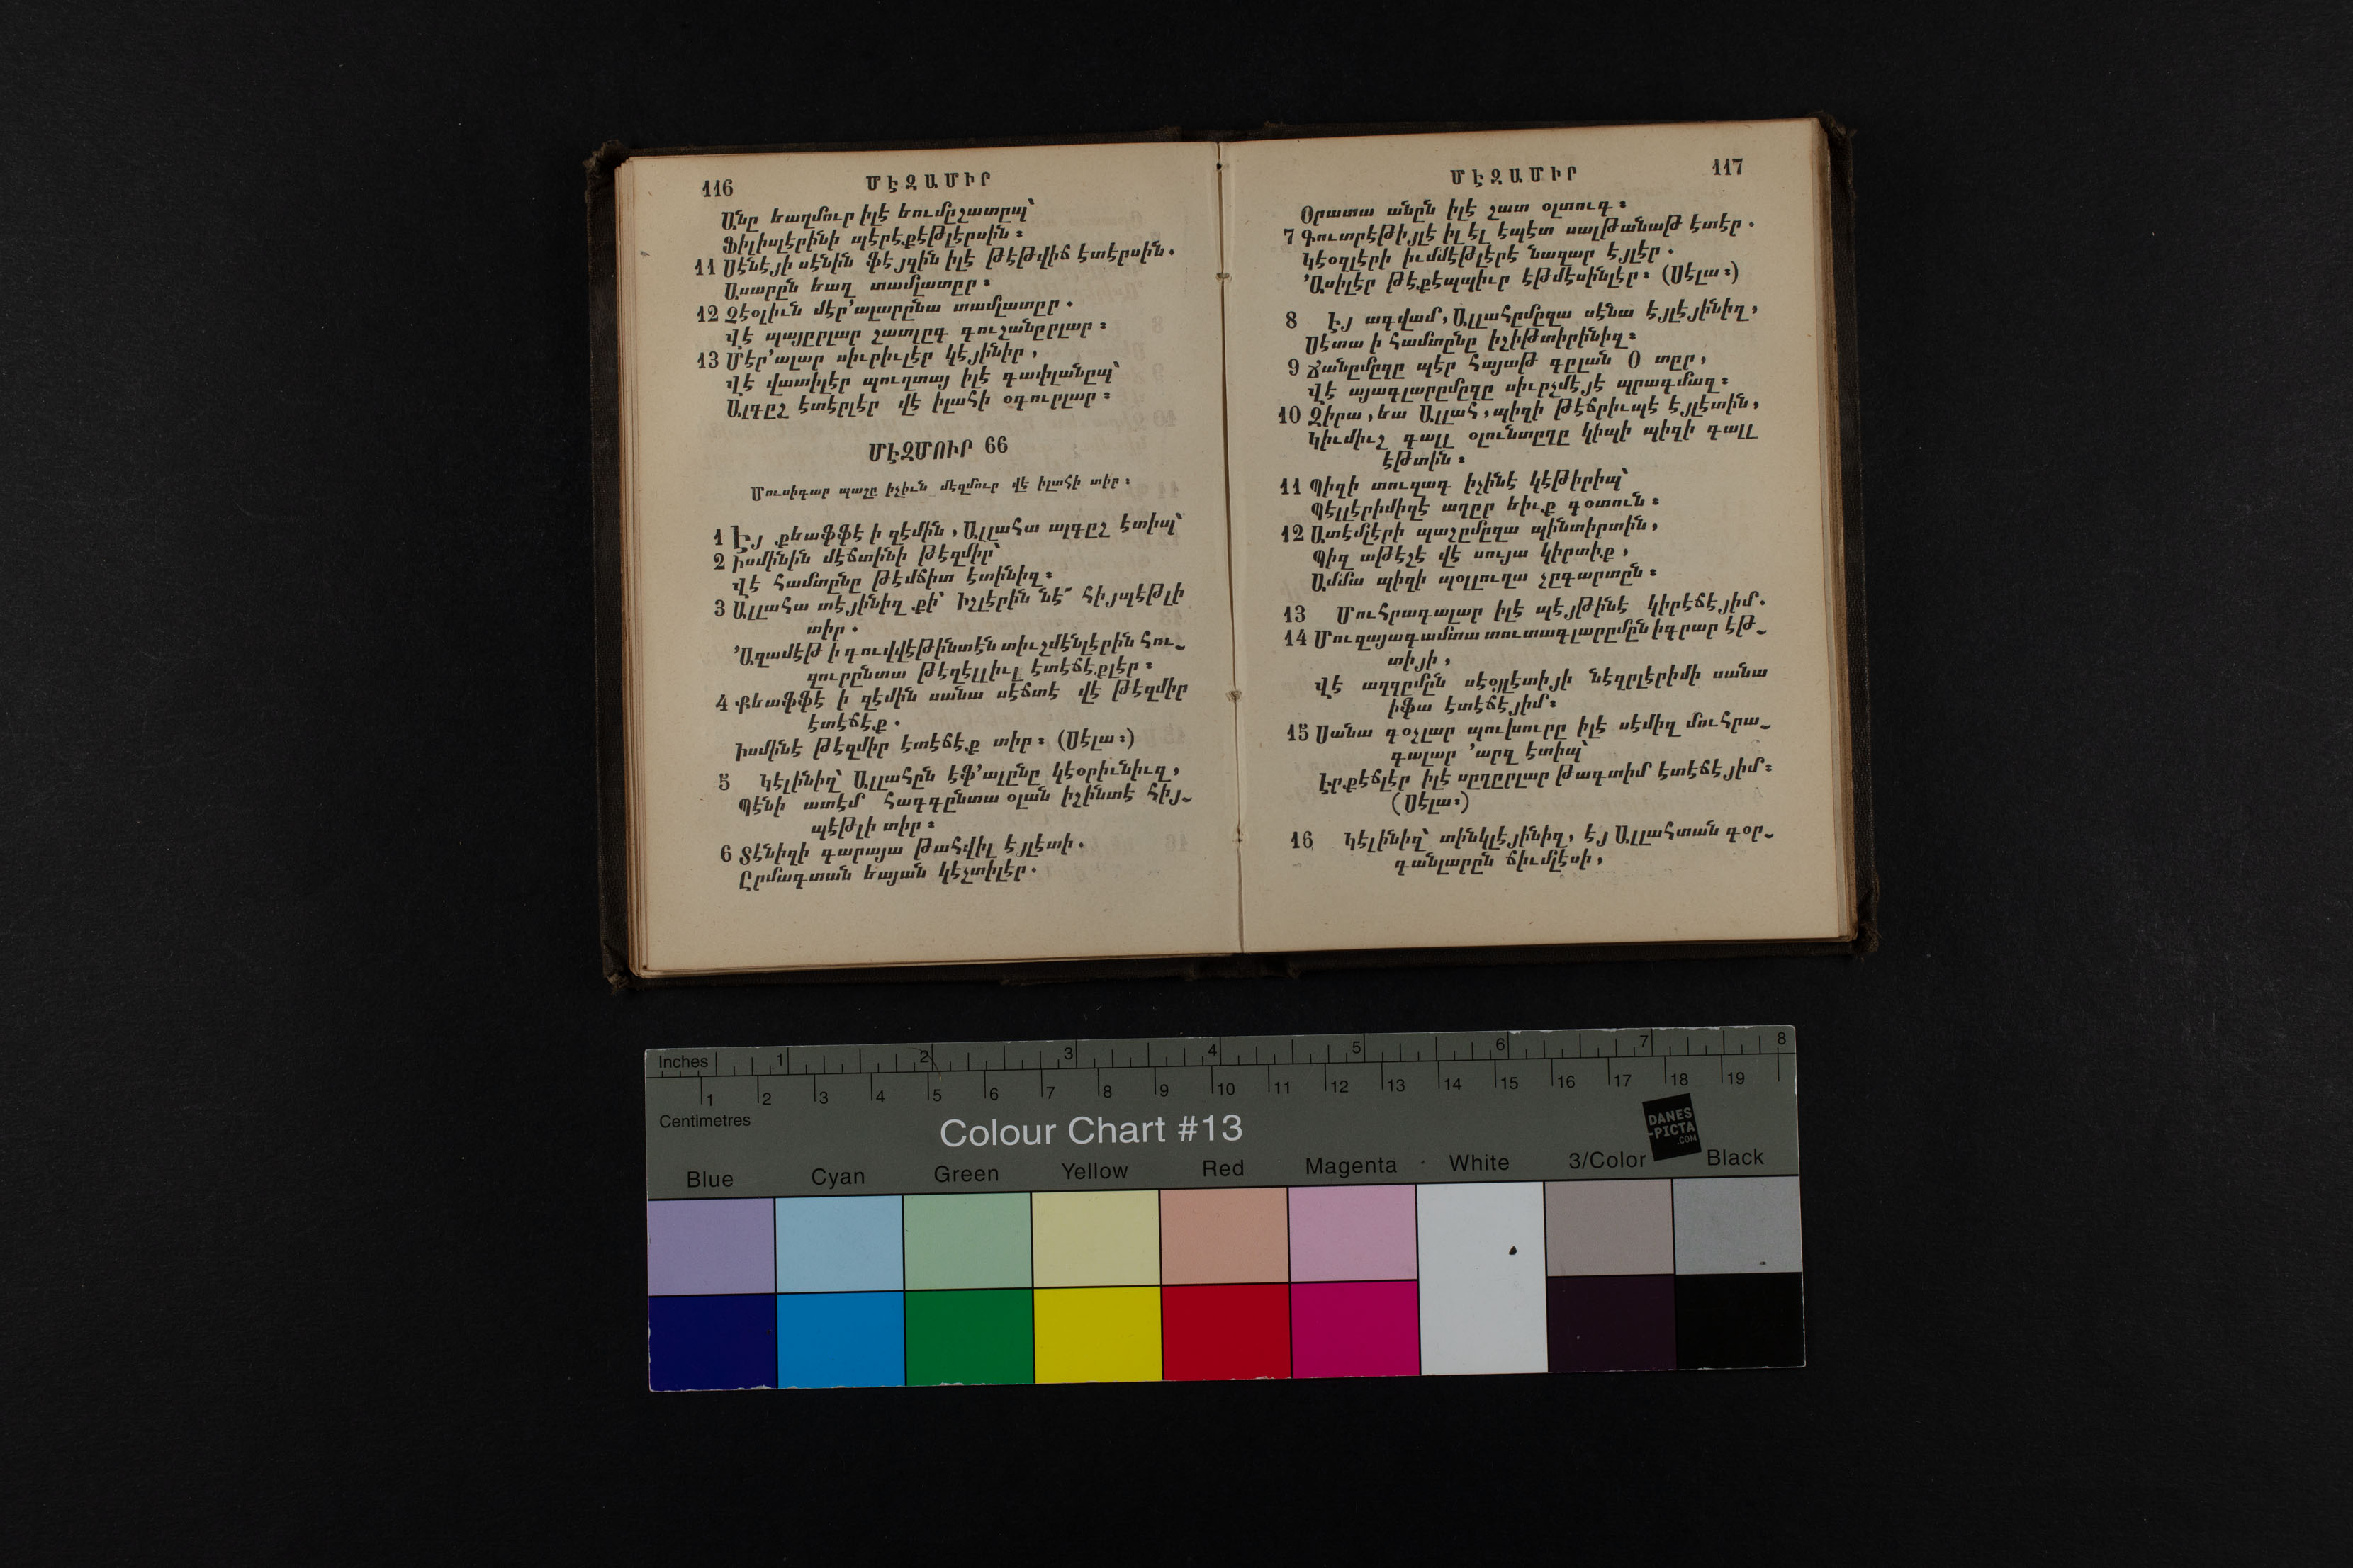 116 ՄԷԶԱՄԻՐ
Անը եաղմուր իլէ եումըշատըպ՝
Ֆիլիսլէրինի պէրէքէթլէրսին։
11 Սէնէյի սէնին ֆէյզին իլէ թէթվիճ էտէրսին.
Ասարըն եաղ տամլատըր։
12 Չէօլիւն մէր՚ալարընա տամլատըր.
Վէ պայըրլար չատլըգ գուշանըրլար։
13 Մէր՚ալար սիւրիւլէր կէյինիր,
Վէ վատիլէր պուղտայ իլէ գափլանըպ՝
Ալգըշ էտէրլէր վէ իլահի օգուրլար։
ՄԷԶՄՈՒՐ 66
Մուսիգար պաշը իչիւն մէզմուր վէ իլահի տիր։
1 Էյ քեաֆֆէ ի զէմին, Ալլահա ալգըշ էտիպ՝
2 Իսմինին մէճտինի թէզմիր՝
Վէ համտընը թէմճիտ էտինիզ։
3 Ալլահա տէյինիզ քի՝ Իշլէրին նէ՜ հիյպէթլի
տիր.
՚Ազամէթ ի գուվվէթինտէն տիւշմէնլէրին հու֊
զուրընտա թէզէլլիւլ էտէճէքլէր։
4 Քեաֆֆէ ի զէմին սանա սէճտէ վէ թէզմիր
էտէճէք.
Իսմինէ թէզմիր էտէճէք տիր։ (Սէլա։)
5 Կէլինիզ՝ Ալլահըն էֆ՚ալընը կէօրիւնիւզ,
Պէնի ատէմ հագգընտա օլան իշինտէ հիյ֊
պէթլի տիր։
6 Տէնիզի գարայա թահվիլ էյլէտի.
Ըրմագտան եայան կէչտիլէր.
ՄԷԶԱՄԻՐ 117
Օրատա անըն իլէ շատ օլտուգ։
7 Գուտրէթիյլէ իլ էլ էպէտ սալթանաթ էտէր.
Կէօզլէրի իւմմէթլէրէ նազար էյլէր.
՚Ասիլէր թէքէպպիւր էթմէսինլէր։ (Սէլա։)
8 Էյ ագվամ, Ալլահըմըզա սէնա էյլէյինիզ,
Սէտա ի համտընը իշիթտիրինիզ։
9 Ճանըմըզը պէր հայաթ գըլան Օ տըր,
Վէ այագլարըմըզը սիւրչմէյէ պրագմազ։
10 Զիրա, եա Ալլահ, պիզի թէճրիւպէ էյլէտին,
Կիւմիւշ գալլ օլունտըղը կիպի պիզի գալլ
էթտին։
11 Պիզի տուզագ իչինէ կէթիրիպ՝
Պէլլէրիմիզէ աղըր եիւք գօտուն։
12 Ատէմլէրի պաշըմըզա պինտիրտին,
Պիզ աթէշէ վէ սույա կիրտիք,
Ամմա պիզի պօլլուղա չըգարտըն։
13 Մուհրագալար իլէ պէյթինէ կիրէճէյիմ.
14 Մուզայագամտա տուտագլարըմըն իգրար էթ֊
տիյի,
Վէ աղզըմըն սէօյլէտիյի նէզրլէրիմի սանա
իֆա էտէճէյիմ։
15 Սանա գօչլար պուխուրը իլէ սէմիզ մուհրա֊
գալար ՚արզ էտիպ՝
Էրքէճլէր իլէ սըղըրլար թագտիմ էտէճէյիմ։
(Սէլա։)
16 Կէլինիզ՝ տինկլէյինիզ, էյ Ալլահտան գօր֊
գանլարըն ճիւմլէսի,
Inches 1 2 3 4 5 6 7 8
1 2 3 4 5 6 7 8 9 10 11 12 13 14 15 16 17 18 19
Centimetres
Colour Chart #13
DANES
-PICTA
.COM
Blue Cyan Green Yellow Red Magenta White 3/Color Black